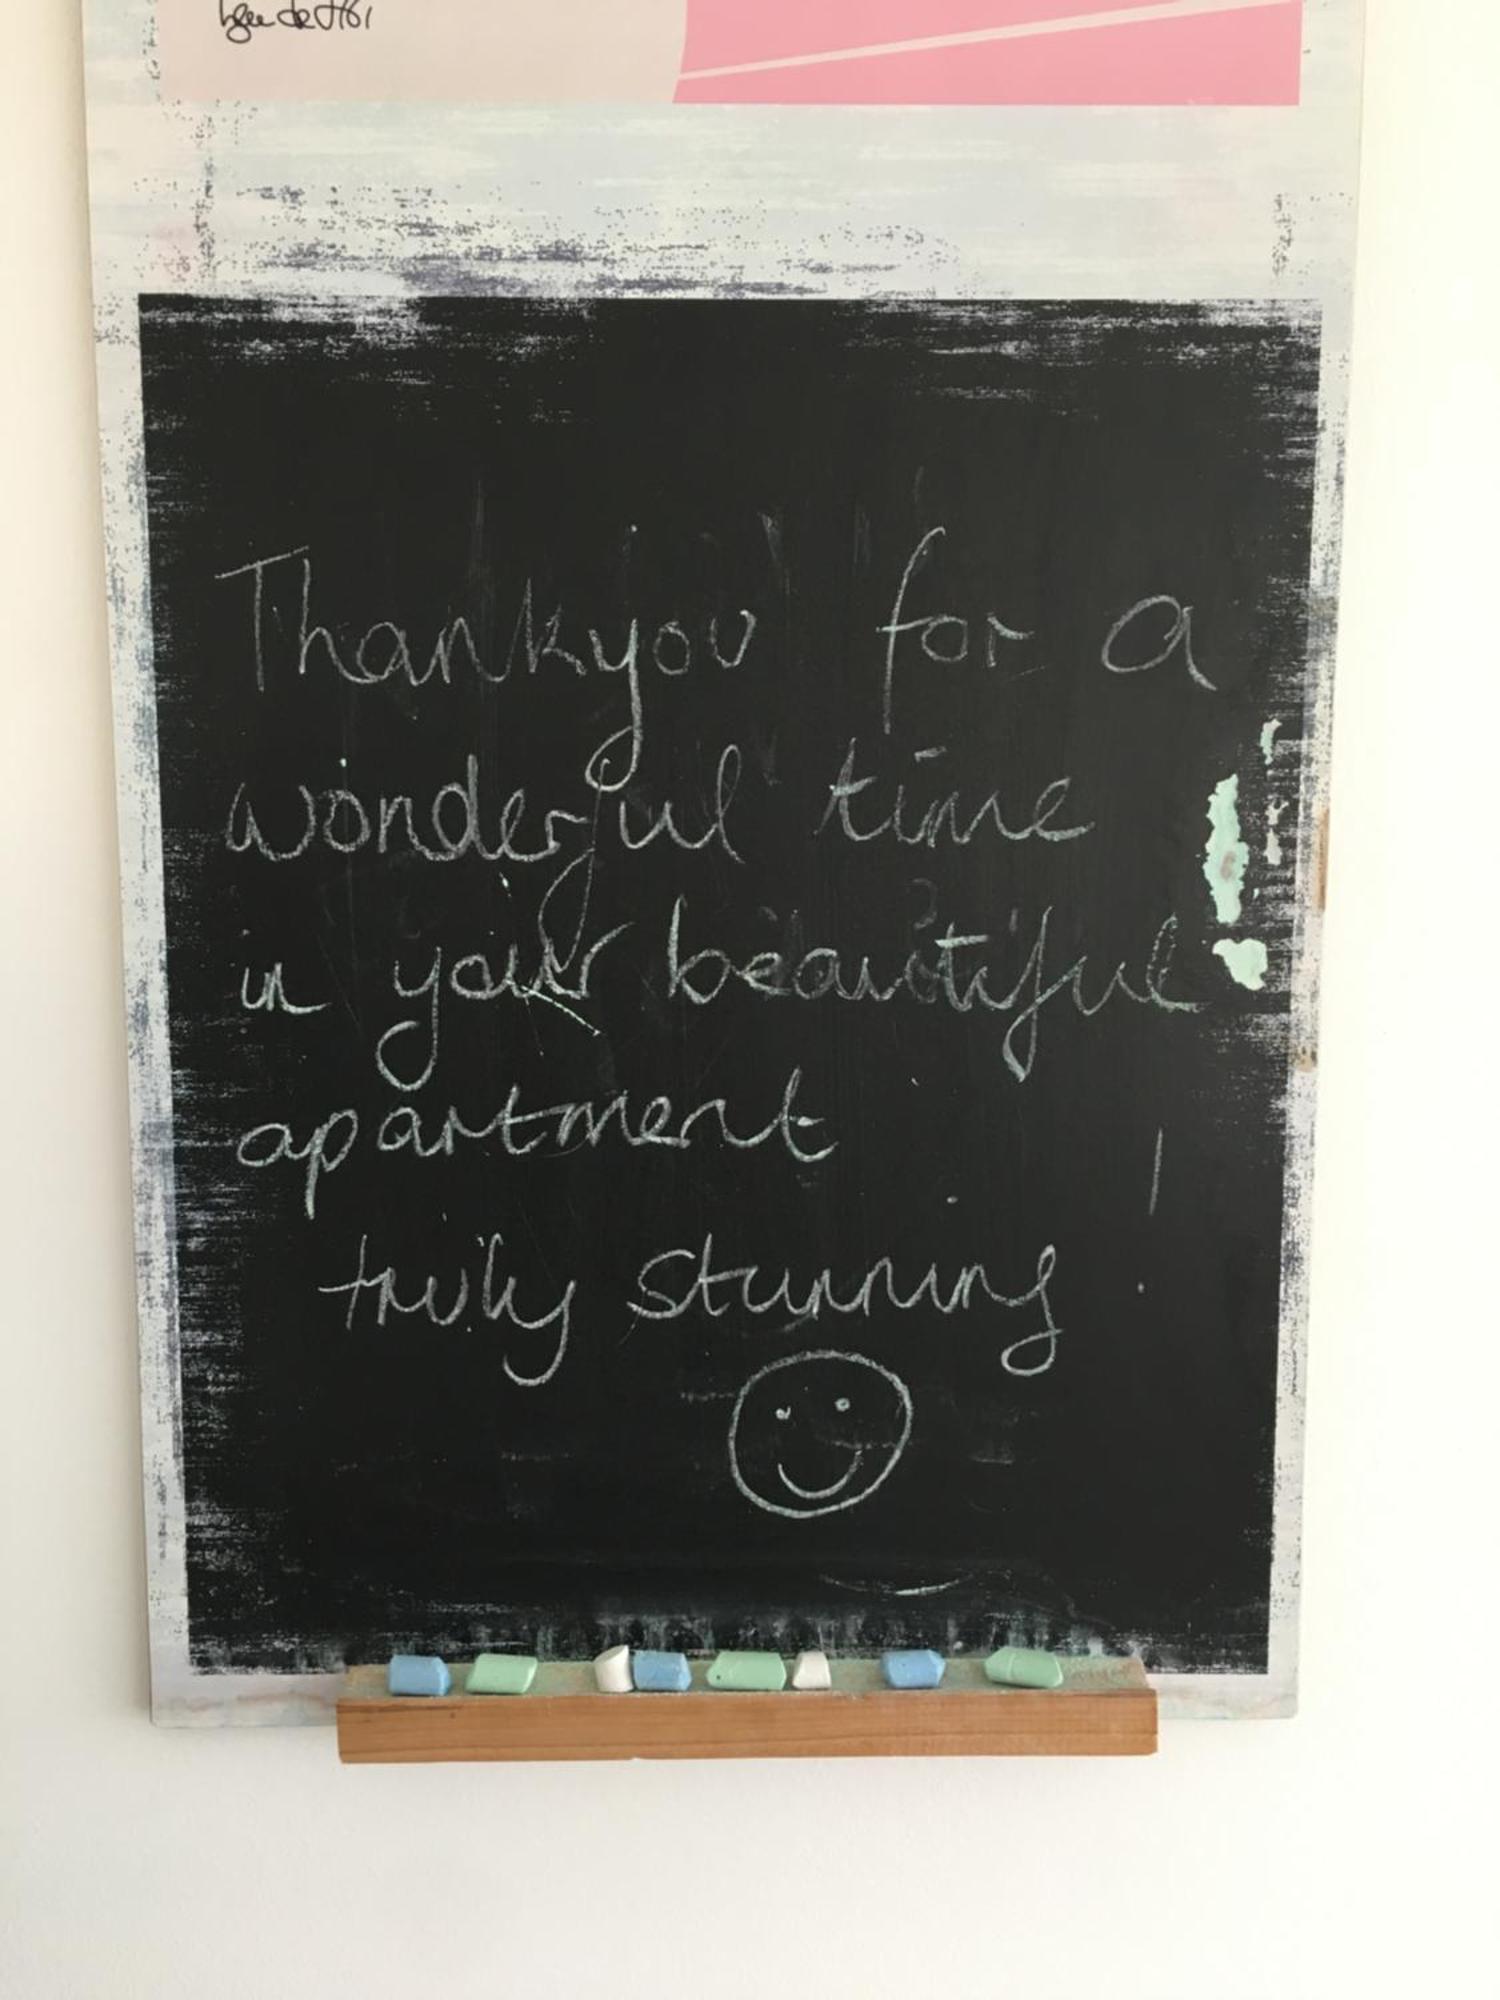 Thankyou for a
wonderful time
in your beautiful
apartment
truly stunning !